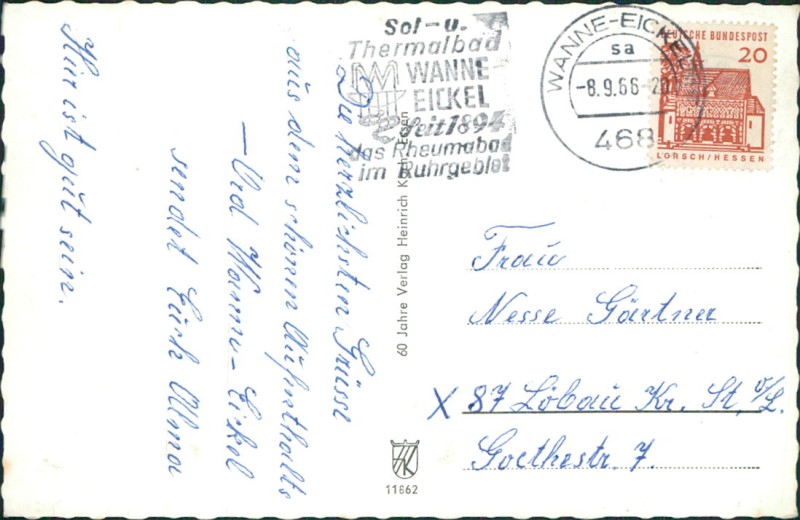 Sol- u.
Thermalbad
WANNE-
EICKEL
seit 1894
das Rheumabad
im Ruhrgebiet
WANNE-EICKEL
sa
-8.9.66-20
468
DEUTSCHE BUNDESPOST
20
LORSCH/HESSEN
Die herzlichsten Grüsse
aus dem schönen Aufenthalts
– Ord Wanne-Eickel
sendet Euch Alma
Hier ist gut sein.
60 Jahre Verlag Heinrich Koch, Essen
11862
Frau
Nesse Gärtner
X 87 Löbau Kr. St. o/L.
Goethestr. 7.